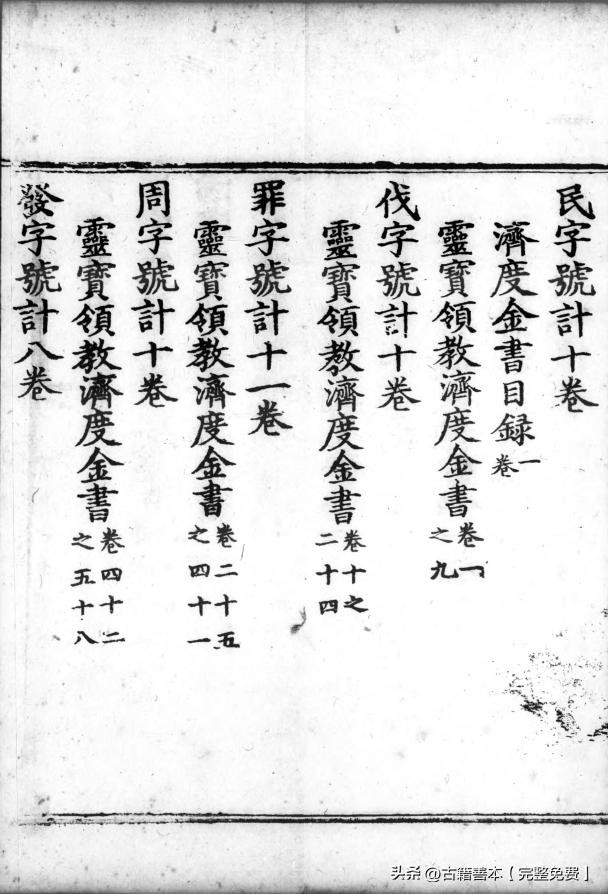 民字號計十卷
濟度金書目録一卷
靈寶領教濟度金書卷一之九
伐字號計十卷
靈寶領教濟度金書卷十之二十四
罪字號計十一卷
靈寶領教濟度金書卷二十五之四十一
周字號計十卷
靈寶領教濟度金書卷四十二之五十八
發字號計八卷
头条 @古籍善本【完整免费】